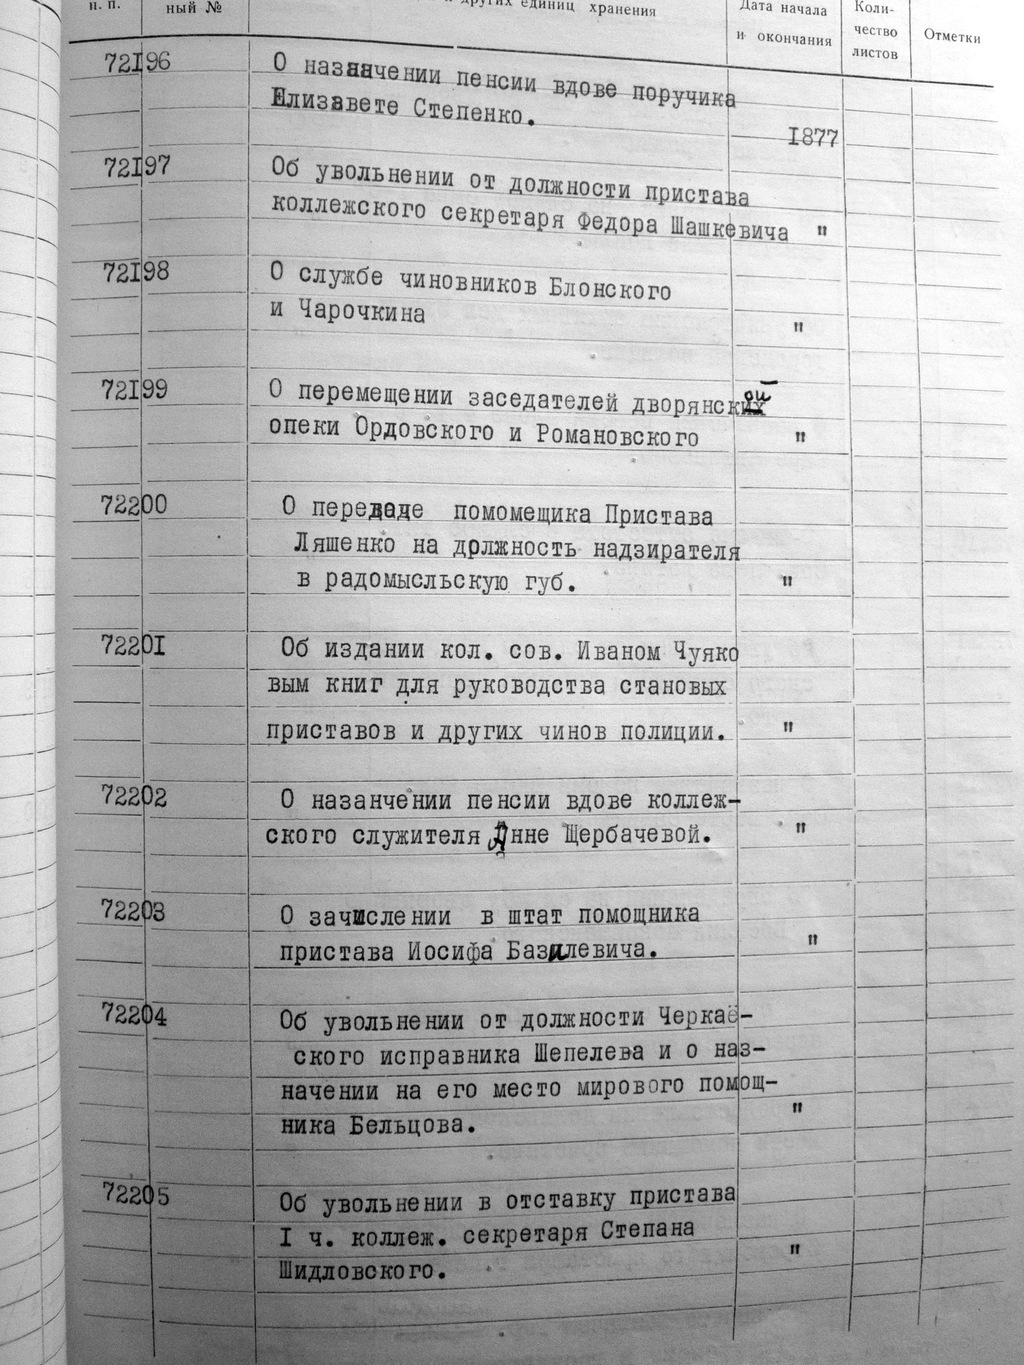 п. п.
ный №
других единиц хранения
Дата начала
и окончания
Коли-
чество
листов
Отметки
72196
О назначении пенсии вдове поручика
Елизавете Степенко.
1877
72197
Об увольнении от должности пристава
коллежского секретаря Федора Шашкевича "
72198
О службе чиновников Блонского
и Чарочкина "
72199
О перемещении заседателей дворянской
опеки Ордовского и Романовского "
72200
О переводе помомещика Пристава
Ляшенко на должность надзирателя
в радомысльскую губ. "
72201
Об издании кол. сов. Иваном Чуяко
вым книг для руководства становых
приставов и других чинов полиции. "
72202
О назанчении пенсии вдове коллеж-
ского служителя Анне Щербачевой. "
72203
О зачислении в штат помощника
пристава Иосифа Базилевича. "
72204
Об увольнении от должности Черкас-
ского исправника Шепелева и о наз-
начении на его место мирового помощ-
ника Бельцова. "
72205
Об увольнении в отставку пристава
I ч. коллеж. секретаря Степана
Шидловского. "